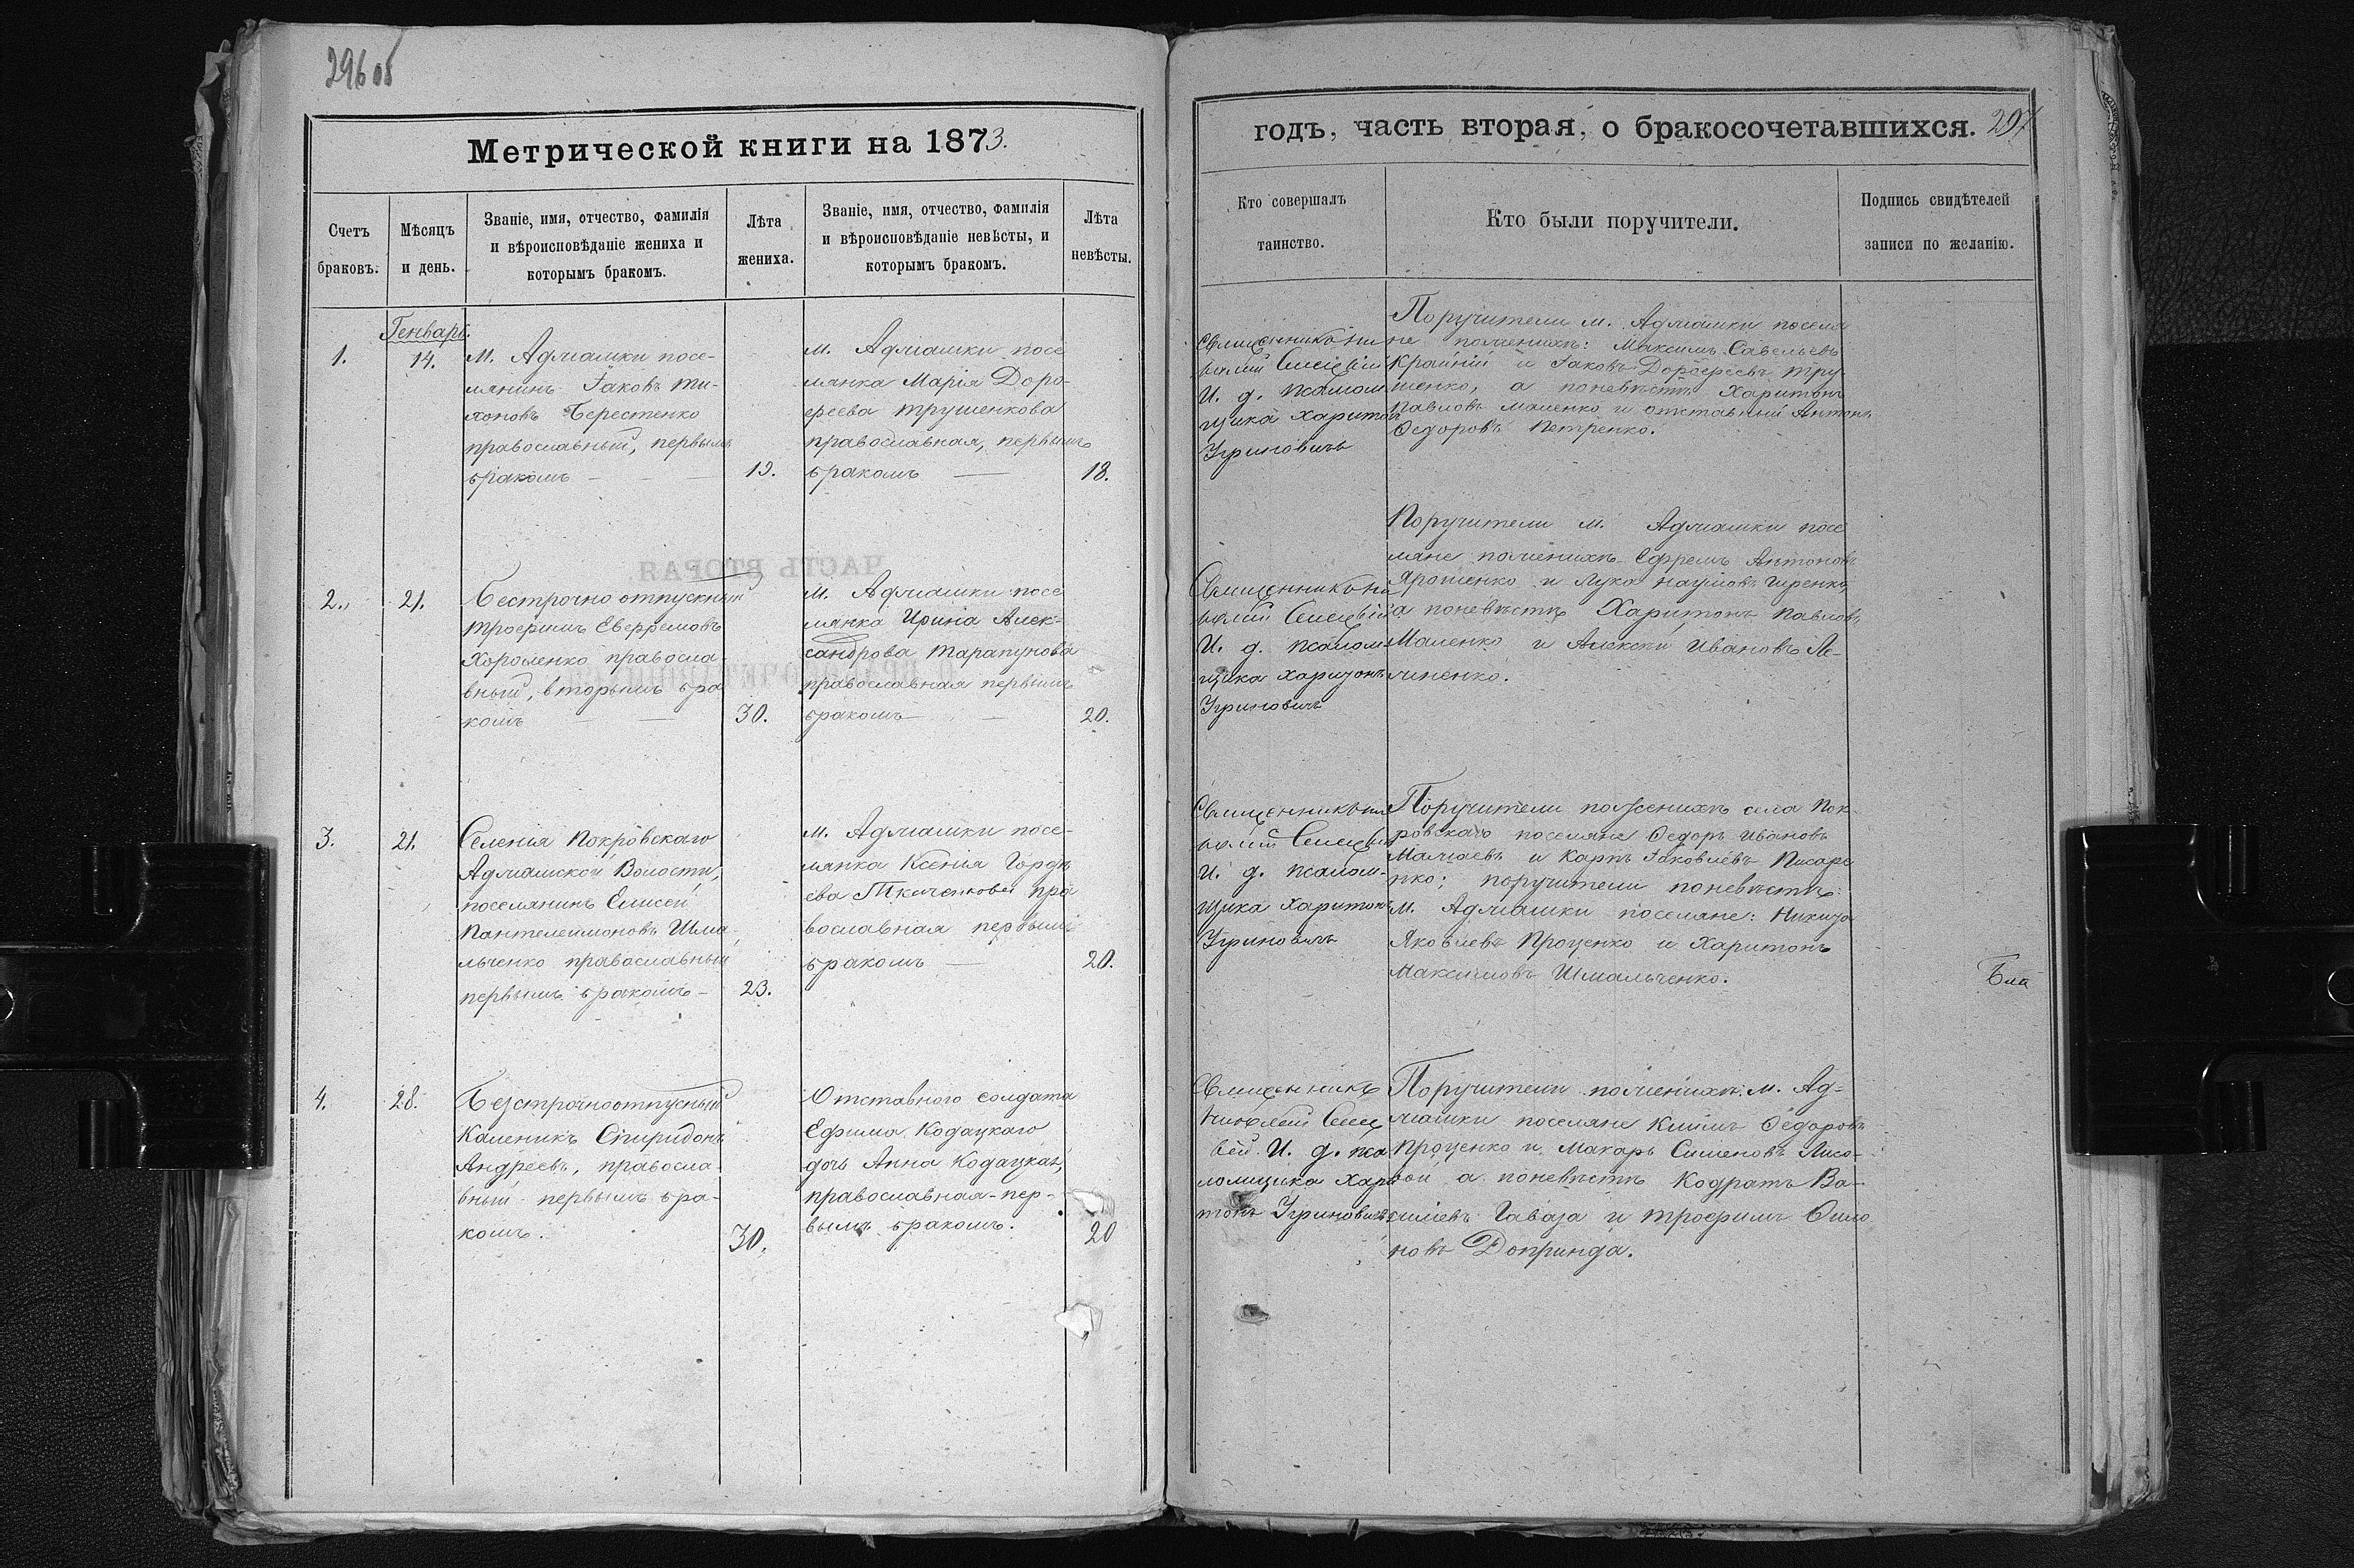 296 об
Метрической книги на 1873.
Счетъ
браковъ.
Мѣсяцъ
и день.
Званіе, имя, отчество, фамилія
и вѣроисповѣданіе жениха и
которымъ бракомъ.
Лѣта
жениха.
Званіе, имя, отчество, фамилія
и вѣроисповѣданіе невѣсты, и
которымъ бракомъ.
Лѣта
невѣсты.
Генварь.
1.
14.
м. Адчіамки посе-
лянинъ Іаковъ Ти-
хоновъ Берестенко
православный, первымъ
бракомъ
19.
м. Адчіамки посе
лянка Марія Доро-
феева Трушенкова
православная, первымъ
бракомъ
18.
2.
21.
Безсрочно отпускный
Трофимъ Еверемовъ
Хороленко правосла-
вный, вторымъ бра
комъ
30.
м. Адчіамки посе
лянка Ирина Алек-
сандрова Тарапунова
православная первымъ
бракомъ
20.
3.
21.
Селенія Покровскаго
Адчіамской Волости,
поселянинъ Елисей
Пантелеимоновъ Шма
льченко православный
первымъ бракомъ
23.
м. Адчіамки посе-
лянка Ксенія Гордѣ
ева Ткаченкова пра
вославная первымъ
бракомъ
20.
4.
28.
Безсрочноотпускный
Каленикъ Спиридонъ
Андреевъ, правосла-
вный первымъ бра-
комъ.
30.
Отставного солдата
Ефима Кодацкаго
дочь Анна Кодацкая,
православная-пер-
вымъ бракомъ.
20
годъ, часть вторая, о бракосочетавшихся. 297
Кто совершалъ
таинство.
Кто были поручители.
Подпись свидѣтелей
записи по желанію.
Священникъ
И. д. псалом
щика Харитонъ
Угриновичъ
Поручители м. Адчіамки поселя
не пожениxѣ: Максимъ Савельевъ
Крайній и Іаковъ Дорофеевъ Тру
шенко, а поневѣстѣ Харитонъ
Павловъ Маленко и отставный Антонъ
Ѳедоровъ Петренко.
Священникъ
И. д. псалом
щика Харитонъ
Угриновичъ
Поручители м. Адчіамки посе
ляне поженихѣ Ефремъ Антоновъ
Ярошенко и Лука Наумовъ Гиренко,
а поневѣстѣ Харитонъ Павловъ
Маленко и Алексѣй Ивановъ
Священникъ
И. д. псалом-
щика Харитонъ
Угриновичъ
Поручители поженихѣ села Пок-
ровскаго поселяне Ѳедоръ Ивановъ
Мамаевъ и Карпъ Іаковлевъ Писаре
нко; поручители поневѣстѣ:
м. Адчіамки поселяне: Никита
Яковлевъ Проценко и Харитонъ
Максимовъ Шмальченко.
Бла
Священникъ
И. д. пса
ломщика Хари
тонъ Угриновичъ
Поручители поженихѣ: м. Ад-
чіамки поселяне Климъ Ѳедоровъ
Проценко и Макаръ Сименовъ Лисо-
вой а поневѣстѣ Кодратъ Ва-
силіевъ Гаваза и Трофимъ Симо
новъ Допринда.